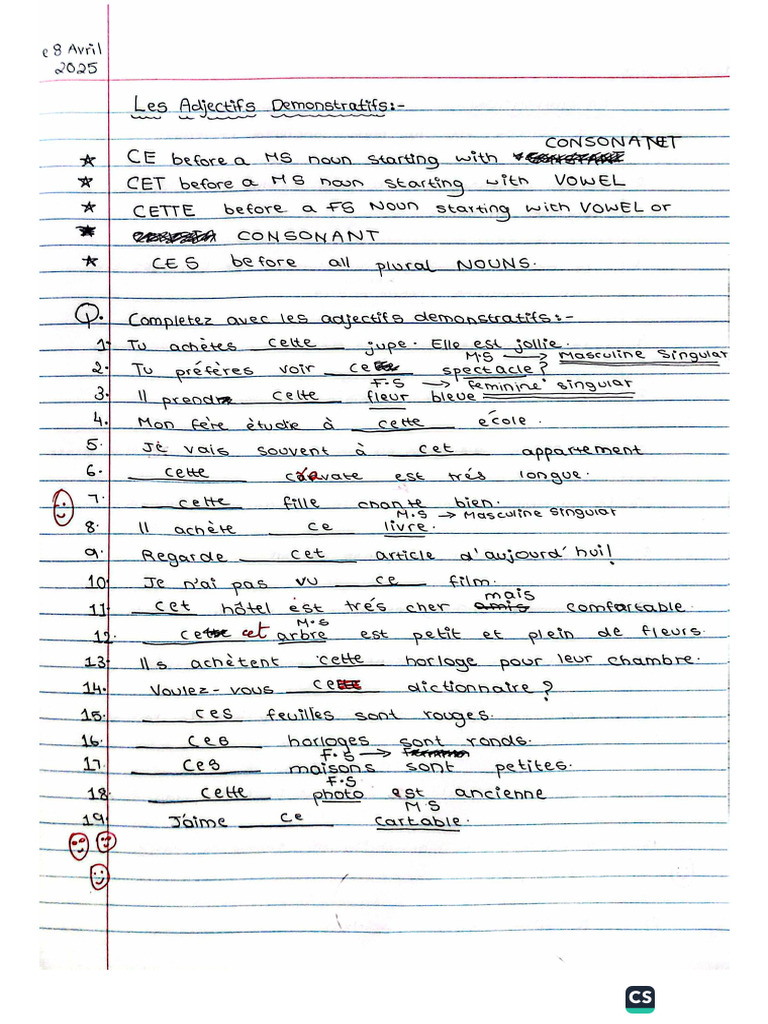 e 8 Avril
2025
Les Adjectifs Demonstratifs:-
CONSONANET
★ CE before a MS noun starting with
★ CET before a MS noun starting with VOWEL
★ CETTE before a FS NOUN starting with VOWEL or
★ CONSONANT
★ CES before all plural NOUNS.
Q. Completez avec les adjectifs demonstratifs:-
1. Tu achètes cette jupe. Elle est jollie.
M.S → Masculine Singular
2. Tu préfères voir ce spectacle?
F.S → feminine singular
3. Il prend cette fleur bleue
4. Mon fère ètudie à cette école.
5. Je vais souvent à cet appartement
6. cette cravate est trés longue.
7. cette fille chante bien.
M.S → Masculine Singular
8. Il achète ce livre.
9. Regarde cet article d'aujourd'hui!
10. Je n'ai pas vu ce film.
mais
11. cet hôtel est trés cher amis comfortable.
M.S
12. cette cet arbre est petit et plein de fleurs.
13. Ils achètent cette horloge pour leur chambre.
14. Voulez-vous ce dictionnaire?
15. ces feuilles sont rouges.
16. ces horloges sont ronds.
F.S →
17. ces maisons sont petites.
F.S
18. cette photo est ancienne
M S
19. J'aime ce cartable.
CS